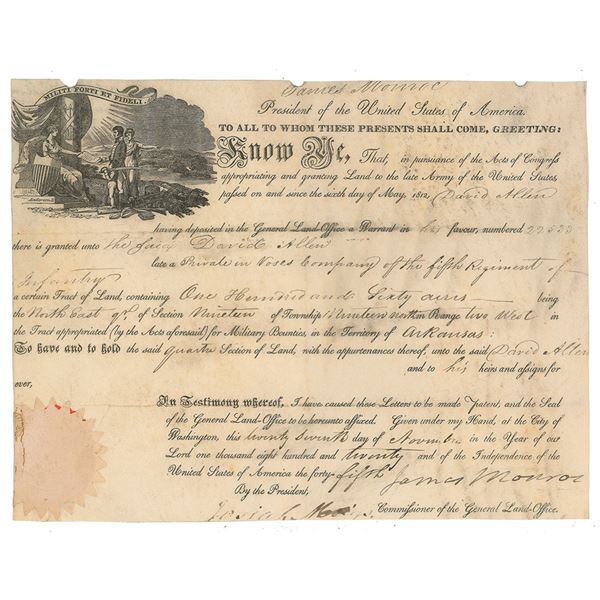 MILITI FORTI ET FIDELI.
James Monroe
President of the United States of America.
TO ALL TO WHOM THESE PRESENTS SHALL COME, GREETING:
Know Ye, That, in pursuance of the Acts of Congress
appropriating and granting Land to the late Army of the United States,
passed on and since the sixth day of May, 1812, David Allen
having deposited in the General Land-Office a Warrant in his favour, numbered 22533
there is granted unto the said David Allen
late a Private in Voses Company of the fifth Regiment of
Infantry
a certain Tract of Land, containing One Hundred and Sixty acres being
the North East qr of Section Nineteen of Township Nineteen north in Range two West in
the Tract appropriated (by the Acts aforesaid) for Military Bounties, in the Territory of Arkansas:
To have and to hold the said quarter Section of Land, with the appurtenances thereof, unto the said David Allen
and to his heirs and assigns for
ever,
In Testimony whereof, I have caused these Letters to be made Patent, and the Seal
of the General Land-Office to be hereunto affixed. Given under my Hand, at the City of
Washington, this twenty Seventh day of November in the Year of our
Lord one thousand eight hundred and twenty and of the Independence of the
United States of America the forty-fifth
James Monroe
By the President,
Josiah Meigs Commissioner of the General Land-Office.